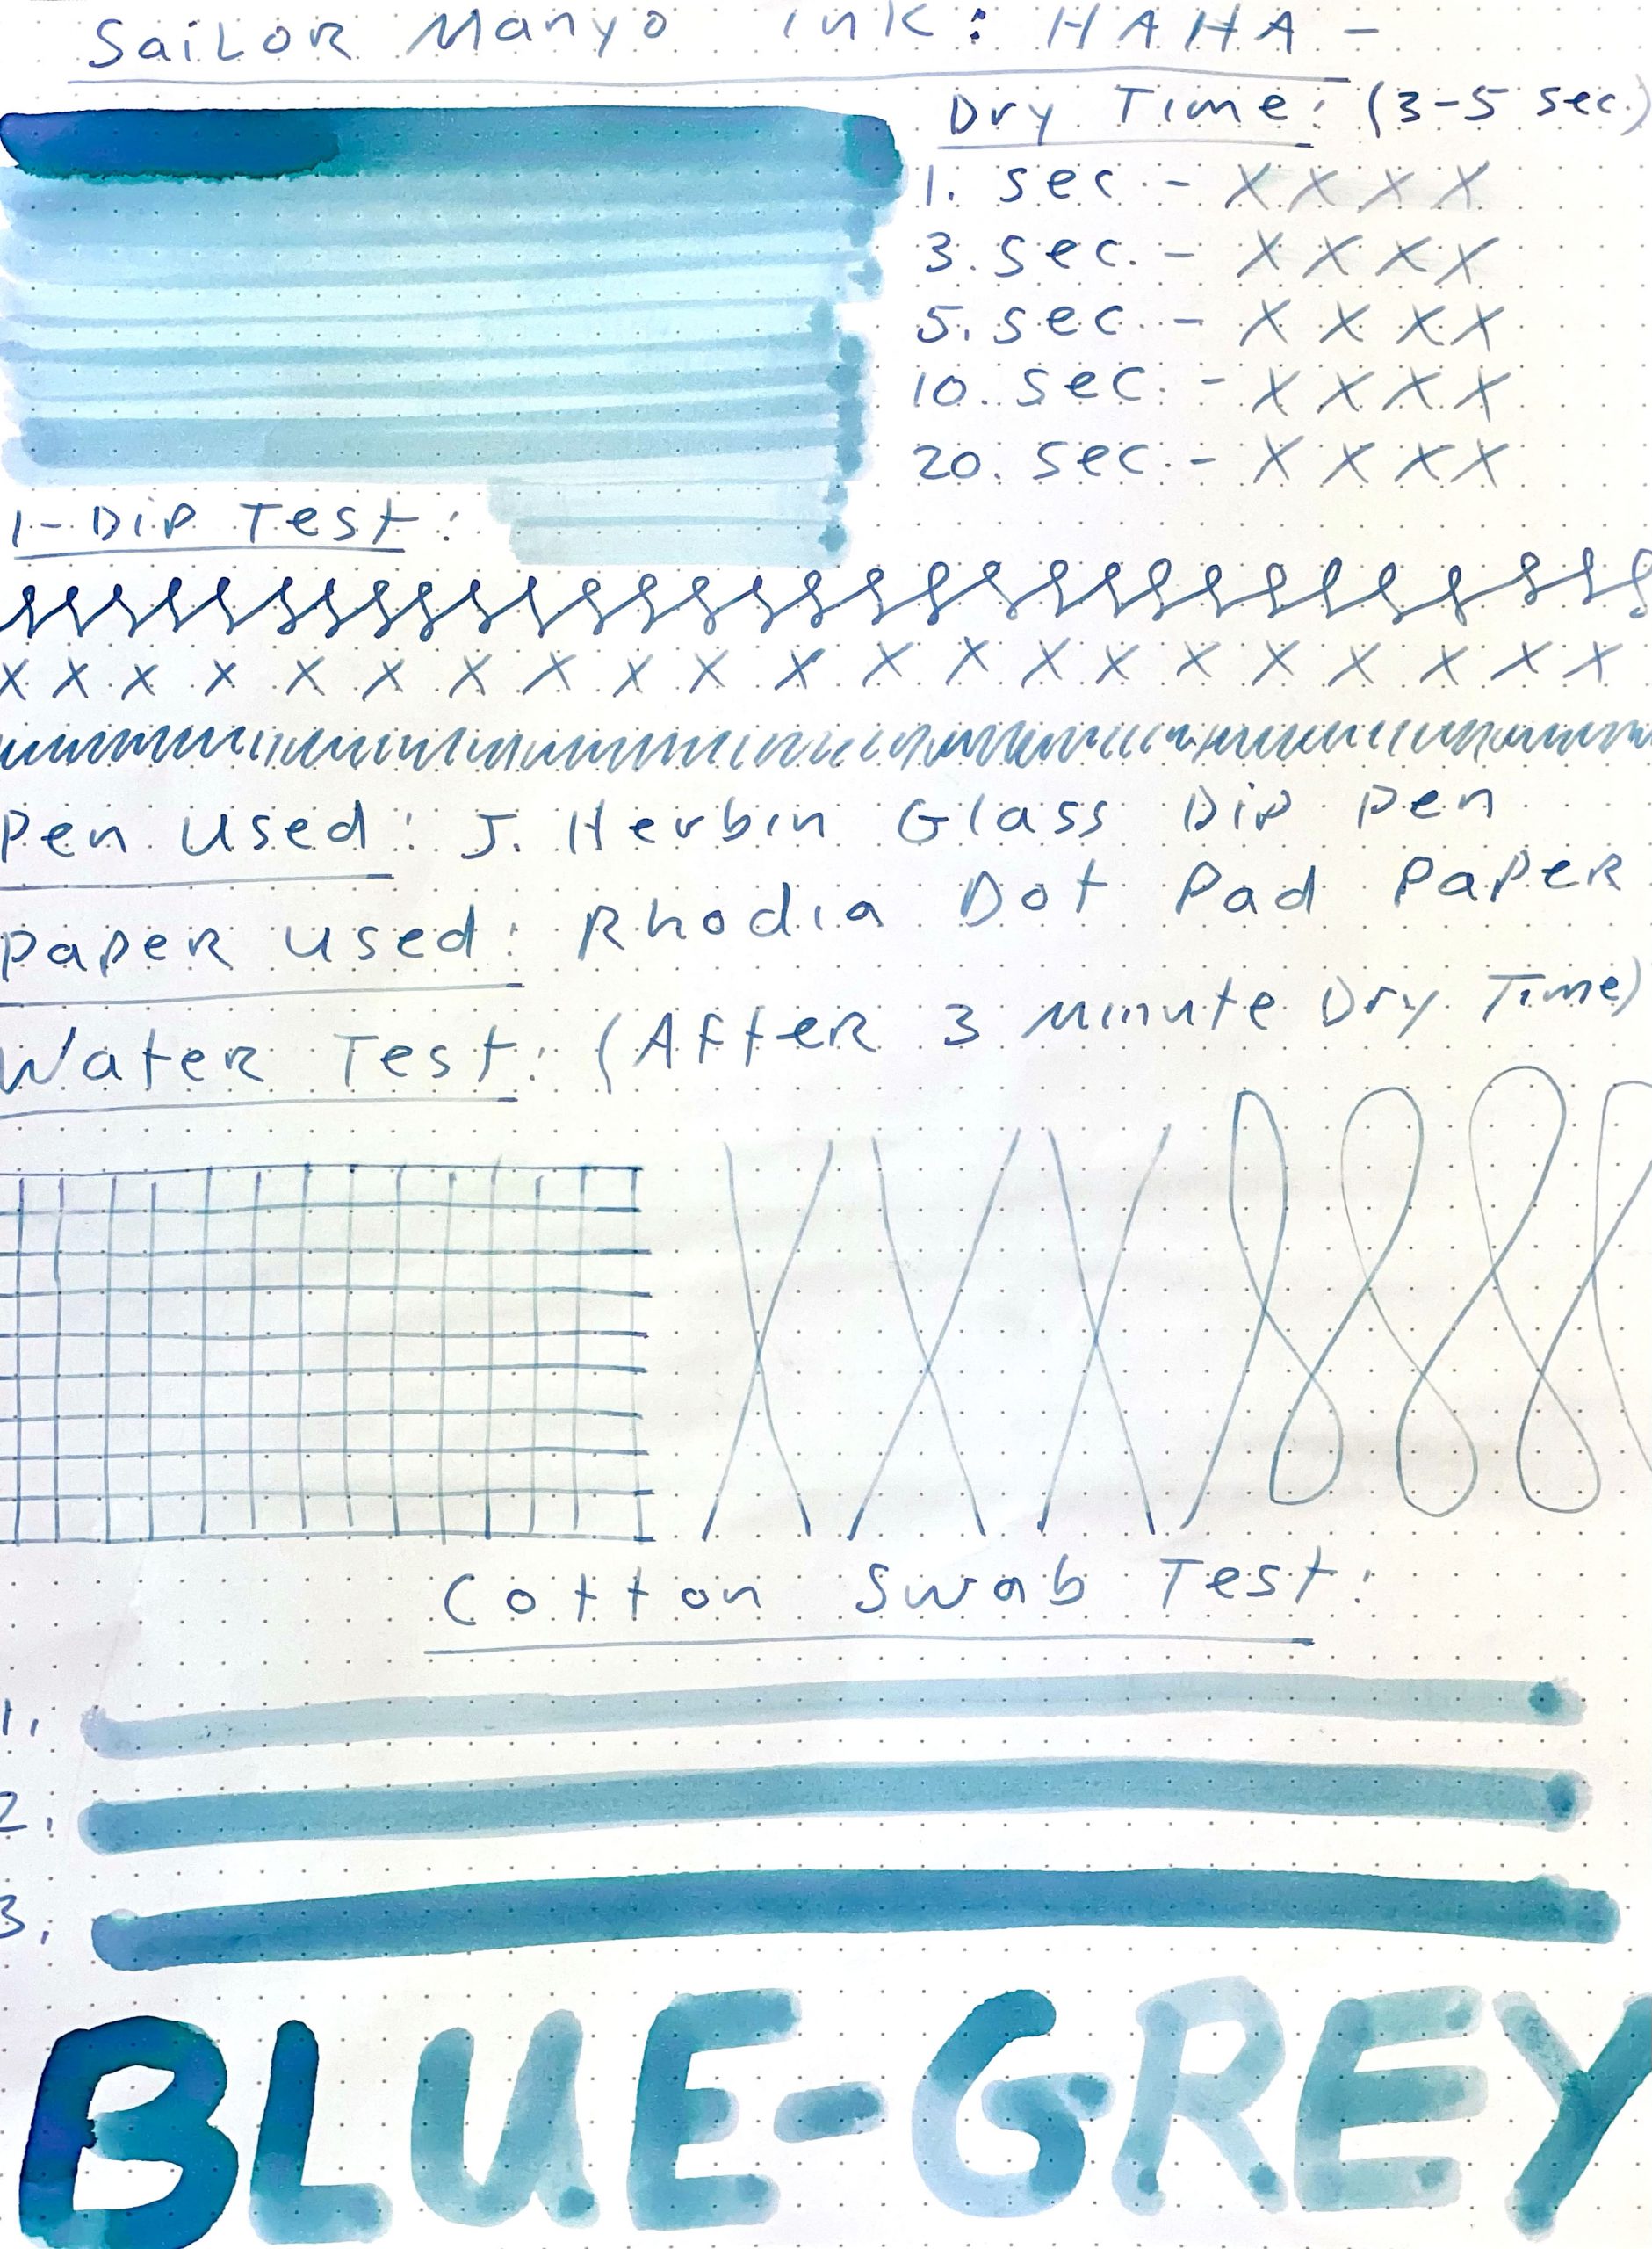 Sailor Manyo Ink: HAHA -
Dry Time: (3-5 sec.)
1. sec - X X X X
3. sec. - X X X X
5. sec. - X X X X
10. sec. - X X X X
20. sec. - X X X X
1-Dip Test:
X X X X X X X X X X X X X X X X X X X X X
Pen Used: J. Herbin Glass Dip Pen
Paper Used: Rhodia Dot Pad Paper
Water Test: (After 3 Minute Dry Time)
Cotton Swab Test:
1.
2.
3.
BLUE-GREY